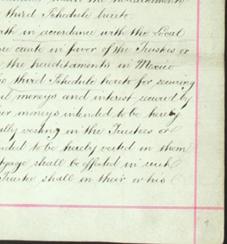 third Schedule hereto.
in accordance with the Local
in favor of the Trustees or
the hereditaments in Mexico
third Schedule hereto for securing
moneys and interest secured by
moneys intended to be hereby
vesting in the Trustees or
intended to be hereby vested in them
shall be effected in such
Trustee shall in their or his